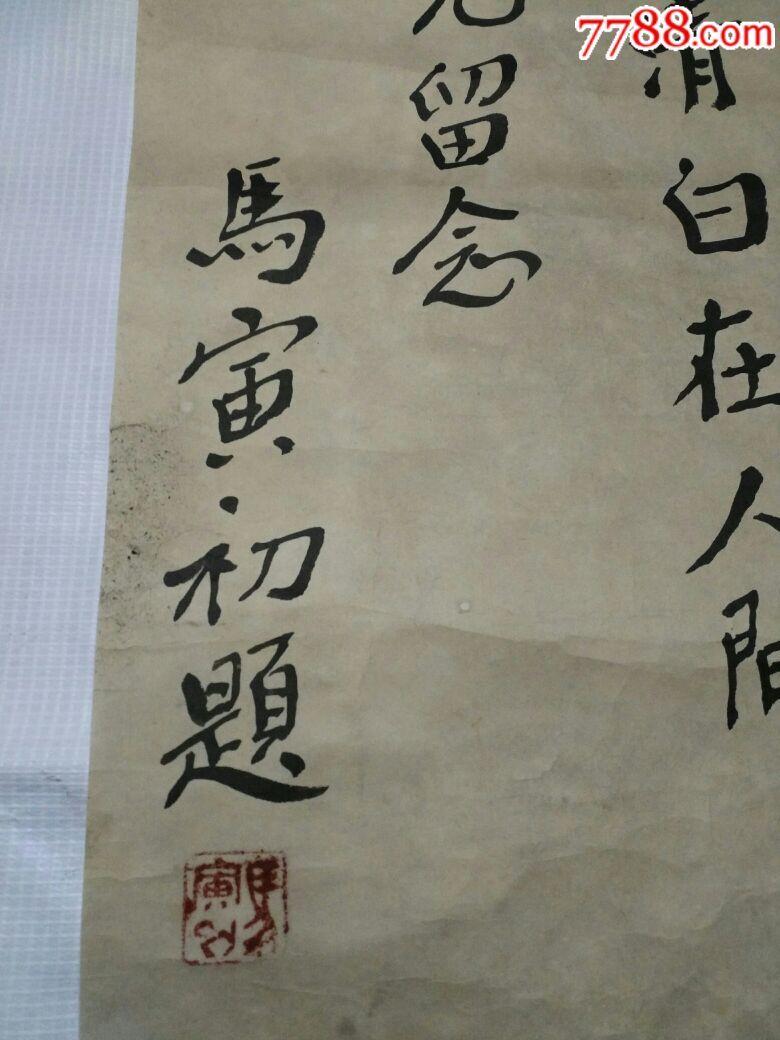 7788.com
清白在人間
留念
馬寅初題
馬寅初